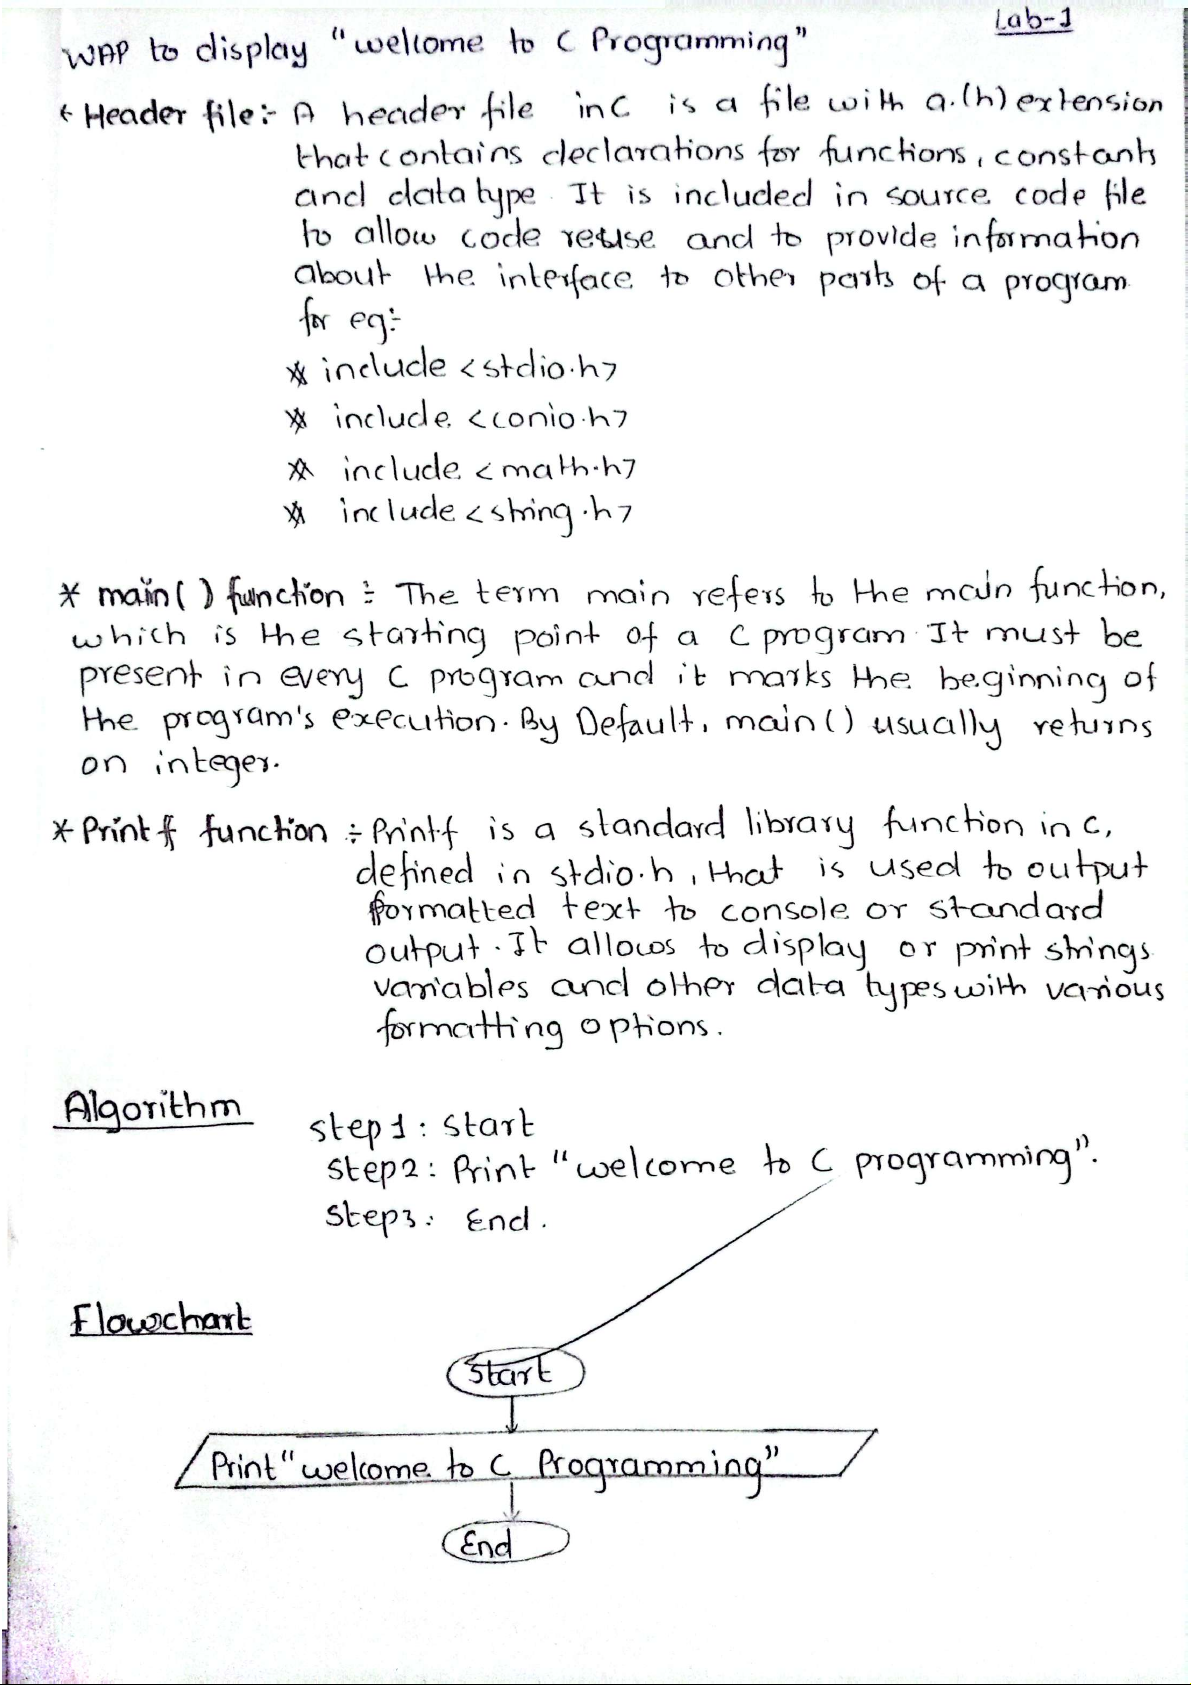 Lab-1
WAP to display "welcome to C Programming"
* Header file:- A header file in C is a file with a.(h) extension
that contains declarations for functions, constants
and data type. It is included in source code file
to allow code reuse and to provide information
about the interface to other parts of a program
for eg:-
* include <stdio.h>
* include <conio.h>
* include <math.h>
* include <string.h>
* main() function ÷ The term main refers to the main function,
which is the starting point of a C program. It must be
present in every C program and it marks the beginning of
the program's execution. By Default, main() usually returns
on integer.
* Printf function ÷ Printf is a standard library function in C,
defined in stdio.h, that is used to output
formatted text to console or standard
output. It allows to display or print strings
variables and other data types with various
formatting options.
Algorithm
step 1: Start
Step2: Print "welcome to C programming".
Step3: End.
Flowchart
Start
Print "welcome to C Programming"
End